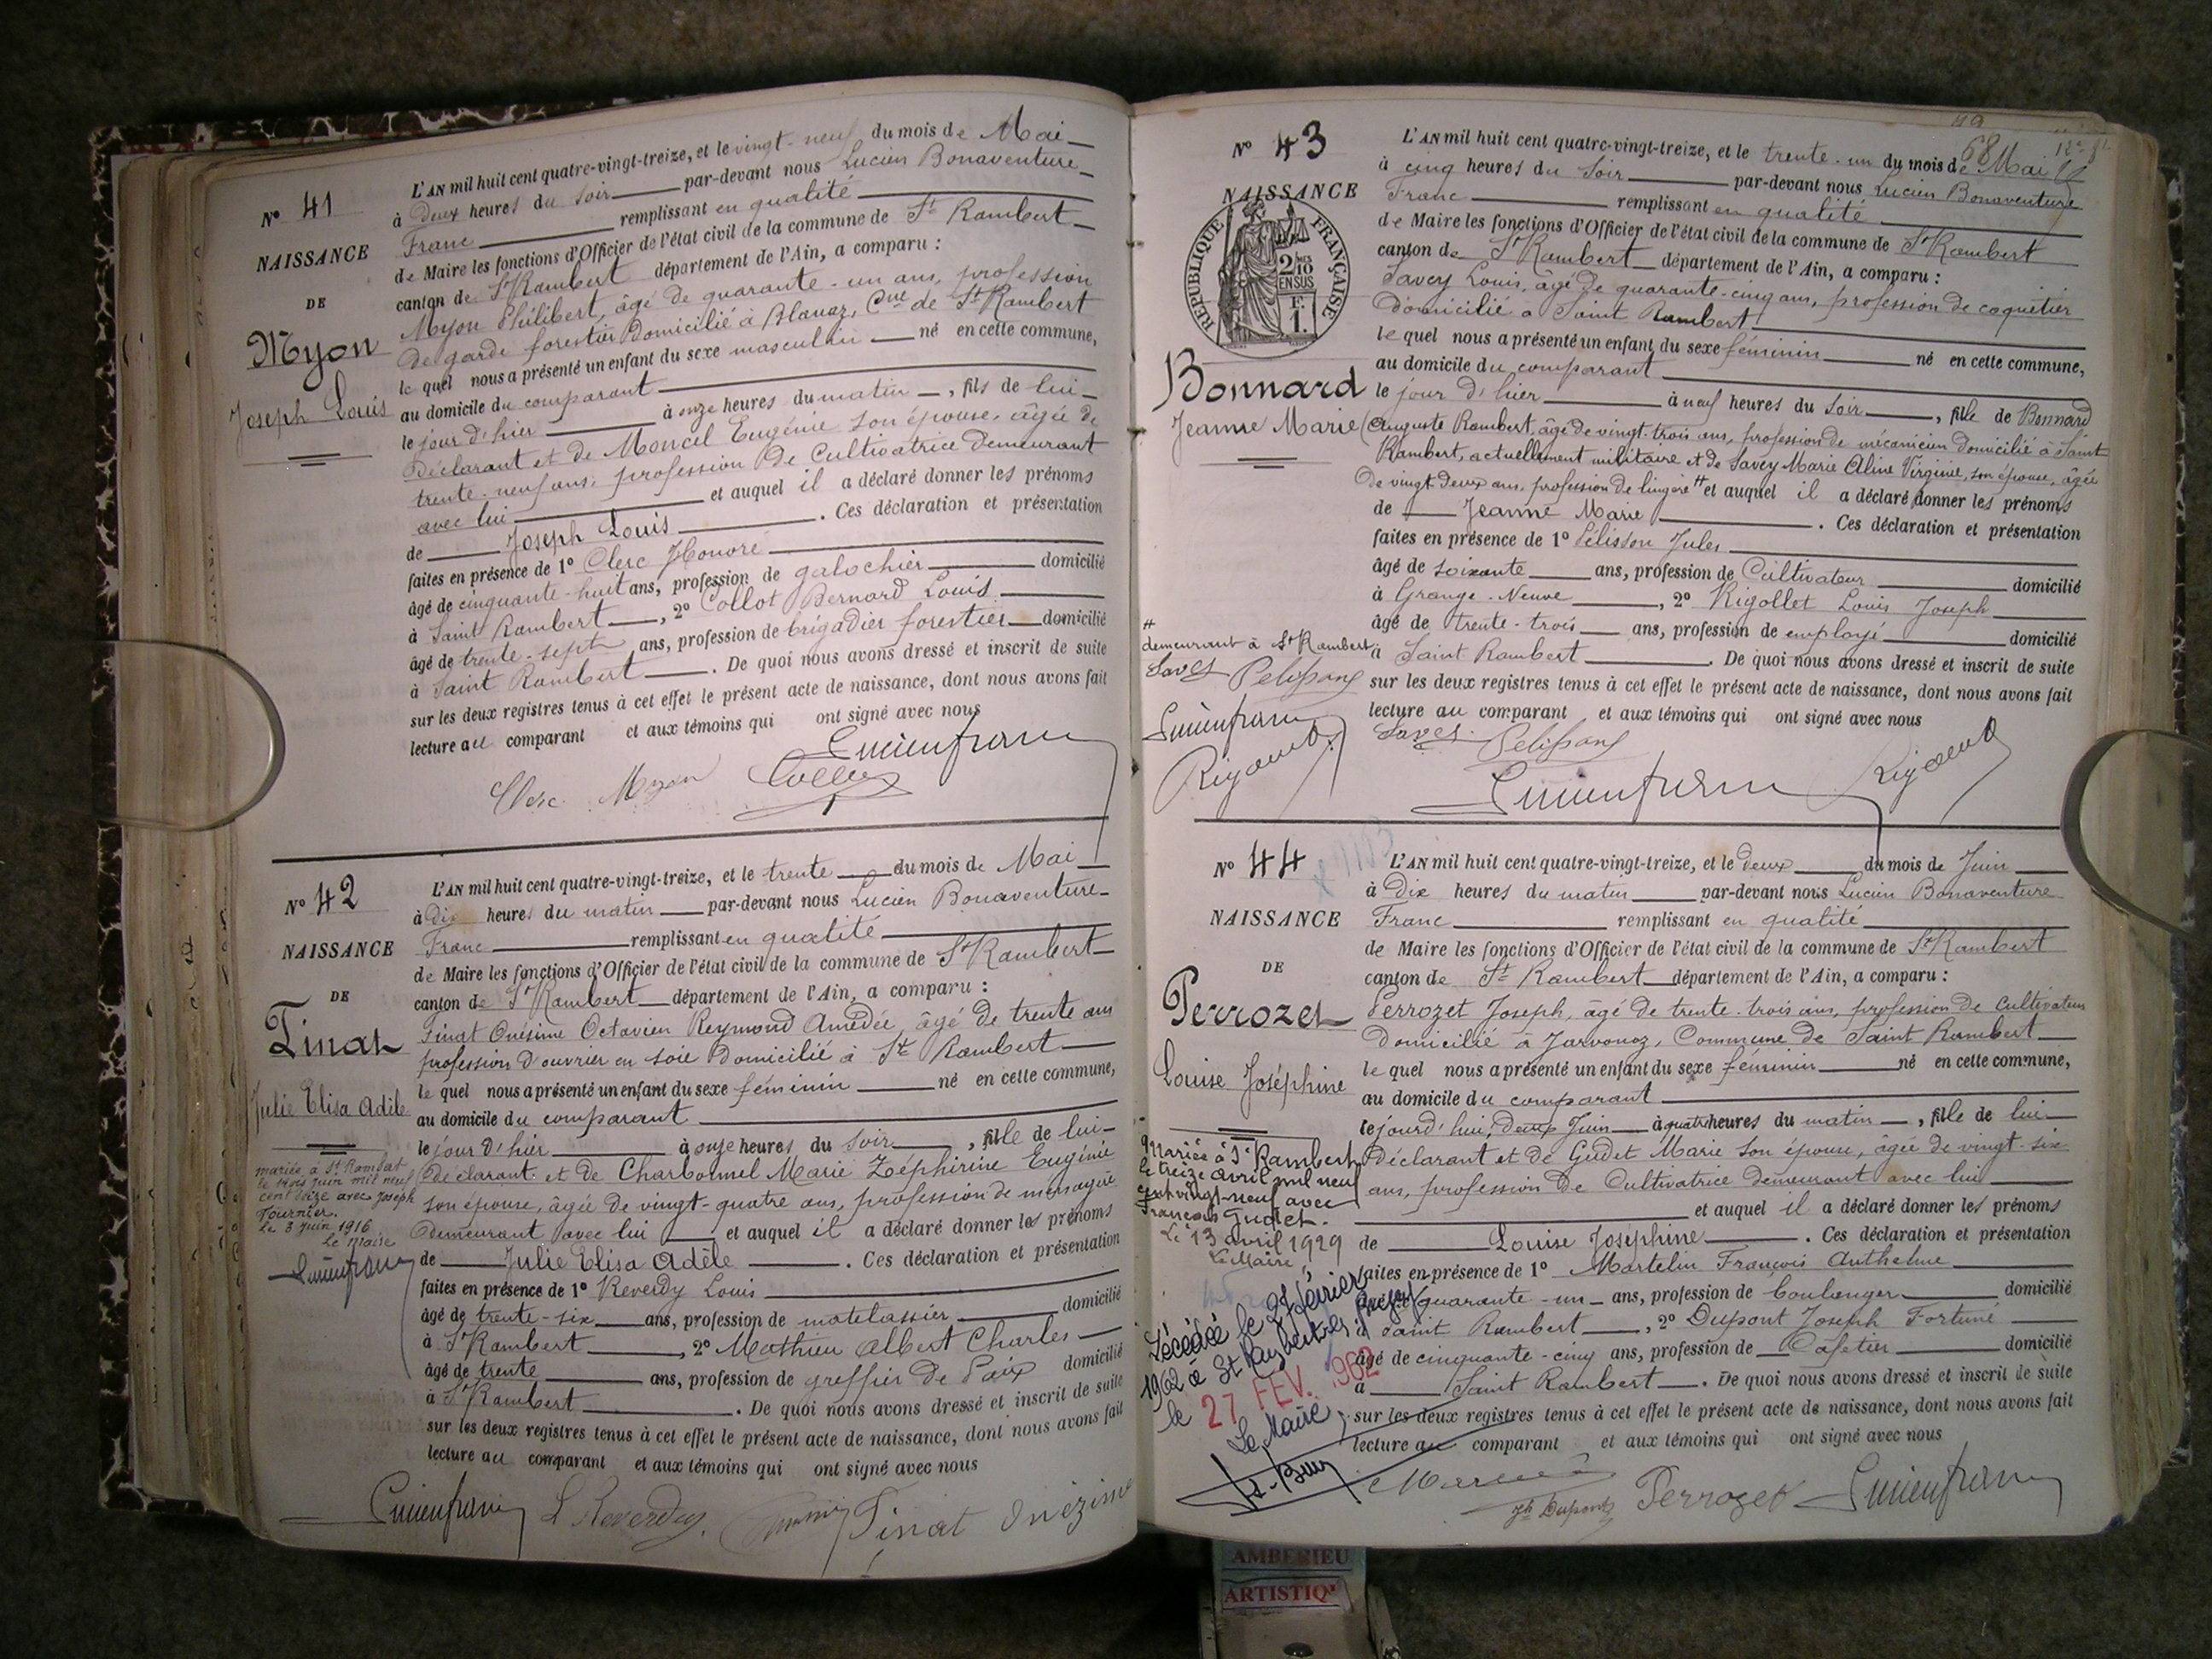 N° 41
NAISSANCE
DE
Myon
Joseph Louis
L'AN mil huit cent quatre-vingt-treize, et le vingt-neuf du mois de Mai
à deux heures du soir par-devant nous Lucien Bonaventure
Franc remplissant en qualité
de Maire les fonctions d'Officier de l'état civil de la commune de St Rambert
canton de St Rambert département de l'Ain, a comparu :
Myon Philibert, âgé de quarante-un ans, profession
de garde forestier domicilié à Blanaz, Cne de St Rambert
le quel nous a présenté un enfant du sexe masculin né en cette commune,
au domicile du comparant
le jour d'hier à onze heures du matin, fils de lui
déclarant et de Moncel Eugénie son épouse, âgée de
trente-neuf ans, profession de Cultivatrice demeurant
avec lui et auquel il a déclaré donner les prénoms
de Joseph Louis. Ces déclaration et présentation
faites en présence de 1° Clerc Honoré
âgé de cinquante-huit ans, profession de galochier domicilié
à Saint Rambert, 2° Collot Bernard Louis
âgé de trente-sept ans, profession de brigadier forestier domicilié
à Saint Rambert. De quoi nous avons dressé et inscrit de suite
sur les deux registres tenus à cet effet le présent acte de naissance, dont nous avons fait
lecture au comparant et aux témoins qui ont signé avec nous
Lucienfranc
Clerc Myon Collot
N° 42
NAISSANCE
DE
Tinat
Julie Elisa Adèle
mariée à St Rambert
le trois juin mil neuf
cent seize avec Joseph
Tournier.
Le 3 Juin 1916
Le Maire
Lucienfranc
L'AN mil huit cent quatre-vingt-treize, et le trente du mois de Mai
à dix heures du matin par-devant nous Lucien Bonaventure
Franc remplissant en qualité
de Maire les fonctions d'Officier de l'état civil de la commune de St Rambert
canton de St Rambert département de l'Ain, a comparu :
Tinat Onésime Octavien Reymond Amédée, âgé de trente ans
profession d'ouvrier en soie domicilié à St Rambert
le quel nous a présenté un enfant du sexe féminin né en cette commune,
au domicile du comparant
le jour d'hier à onze heures du soir, fille de lui
déclarant et de Charbonnel Marie Zéphirine Eugénie
son épouse, âgée de vingt-quatre ans, profession de ménagère
demeurant avec lui et auquel il a déclaré donner les prénoms
de Julie Elisa Adèle. Ces déclaration et présentation
faites en présence de 1° Reverdy Louis
âgé de trente-six ans, profession de matelassier domicilié
à St Rambert, 2° Mathieu Albert Charles
âgé de trente ans, profession de greffier de Paix domicilié
à St Rambert. De quoi nous avons dressé et inscrit de suite
sur les deux registres tenus à cet effet le présent acte de naissance, dont nous avons fait
lecture au comparant et aux témoins qui ont signé avec nous
Lucienfranc L Reverdy Tinat Onézime
68
N° 43
NAISSANCE
RÉPUBLIQUE FRANÇAISE
2/10 EN SUS
F. 1.
Bonnard
Jeanne Marie
L'AN mil huit cent quatre-vingt-treize, et le trente-un du mois de Mai
à cinq heures du soir par-devant nous Lucien Bonaventure
Franc remplissant en qualité
de Maire les fonctions d'Officier de l'état civil de la commune de St Rambert
canton de St Rambert département de l'Ain, a comparu :
Savey Louis, âgé de quarante-cinq ans, profession de coquetier
domicilié à Saint Rambert
le quel nous a présenté un enfant du sexe féminin né en cette commune,
au domicile du comparant
le jour d'hier à neuf heures du soir, fille de Bonnard
Auguste Rambert, âgé de vingt-trois ans, profession de mécanicien domicilié à Saint
Rambert, actuellement militaire et de Savey Marie Aline Virginie, son épouse, âgée
de vingt-deux ans, profession de lingère # et auquel il a déclaré donner les prénoms
de Jeanne Marie. Ces déclaration et présentation
faites en présence de 1° Pélisson Jules
âgé de soixante ans, profession de Cultivateur domicilié
à Grange-Neuve, 2° Rigollet Louis Joseph
âgé de trente-trois ans, profession de employé domicilié
à Saint Rambert. De quoi nous avons dressé et inscrit de suite
sur les deux registres tenus à cet effet le présent acte de naissance, dont nous avons fait
lecture au comparant et aux témoins qui ont signé avec nous
#
demeurant à St Rambert
Lucienfranc
Lucienfranc
N° 44
NAISSANCE
DE
Perrozet
Louise Joséphine
Mariée à St Rambert
le treize avril mil neuf
cent vingt-neuf avec
François Gudet.
Le 13 avril 1929
Le Maire,
Décédée le 27 février
1962 à St Rambert en Bugey
le 27 FEV. 1962
Le Maire,
L'AN mil huit cent quatre-vingt-treize, et le deux du mois de Juin
à dix heures du matin par-devant nous Lucien Bonaventure
Franc remplissant en qualité
de Maire les fonctions d'Officier de l'état civil de la commune de St Rambert
canton de St Rambert département de l'Ain, a comparu :
Perrozet Joseph, âgé de trente-trois ans, profession de cultivateur
domicilié à Javornoz, Commune de Saint Rambert
le quel nous a présenté un enfant du sexe féminin né en cette commune,
au domicile du comparant
le jourd'hui, deux Juin à quatre heures du matin, fille de lui
déclarant et de Gudet Marie son épouse, âgée de vingt-six
ans, profession de Cultivatrice demeurant avec lui
et auquel il a déclaré donner les prénoms
de Louise Joséphine. Ces déclaration et présentation
faites en présence de 1° Martelin François Anthelme
âgé de quarante-un ans, profession de boulanger domicilié
à Saint Rambert, 2° Dupont Joseph Fortuné
âgé de cinquante-cinq ans, profession de Cafetier domicilié
à Saint Rambert. De quoi nous avons dressé et inscrit de suite
sur les deux registres tenus à cet effet le présent acte de naissance, dont nous avons fait
lecture au comparant et aux témoins qui ont signé avec nous
Jh Dupont Perrozet Lucienfranc
AMBERIEU
ARTISTIQ